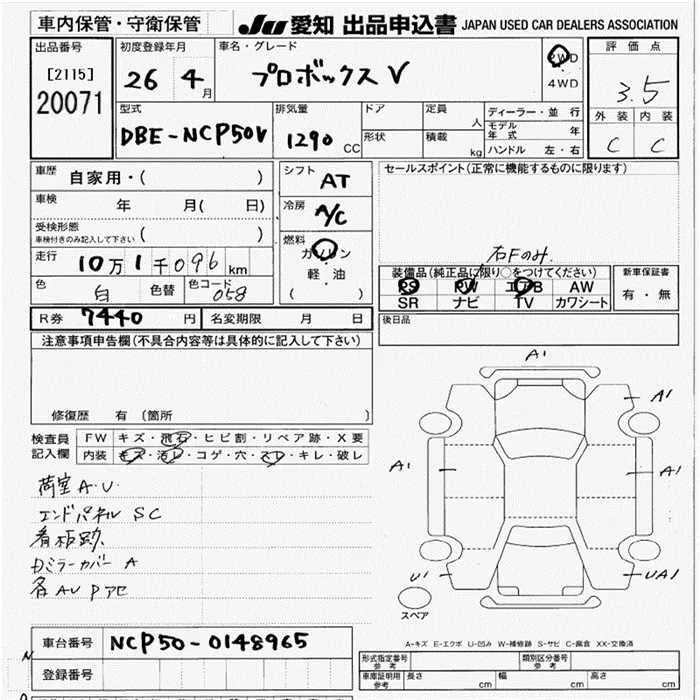 車内保管・守衛保管
JU 愛知 出品申込書 JAPAN USED CAR DEALERS ASSOCIATION
出品番号
[2115]
20071
初度登録年月
26 4月
車名・グレード
プロボックス V
2WD
4WD
評価点
3.5
外装 内装
C C
型式
DBE-NCP50V
排気量
1290 CC
ドア
形状
定員 人
積載 kg
ディーラー・並行
モデル年式 年
ハンドル 左・右
車歴 自家用・( )
車検 年 月( 日)
受検形態
車検付きのみ記入して下さい ( )
走行 10万1千096km
色 白 色替 色コード 058
シフト AT
冷房 A/C
燃料
ガソリン
軽・油
( )
セールスポイント(正常に機能するものに限ります)
右Fのみ.
装備品(純正品に限り○をつけてください)
PS PW エアB AW
SR ナビ TV カワシート
新車保証書
有・無
R券 7440 円 名変期限 月 日
後日品
注意事項申告欄(不具合内容等は具体的に記入して下さい)
修復歴 有 〔箇所 〕
検査員記入欄
FW キズ・飛石・ヒビ割・リペア跡・X要
内装 キズ・汚レ・コゲ・穴・スレ・キレ・破レ
荷室A.U.
エンドパネル SC
看板跡
ドミラーカバー A
各AU Pアセ
A1
A1
A1
A1
U1
UA1
スペア
A-キズ E-エクボ U-凹み W-補修跡 S-サビ C-腐食 XX-交換済
車台番号 NCP50-0148965
登録番号
形式指定番号 参考
類別区分番号 参考
車庫証明用 参考 長さ cm 幅 cm 高さ cm